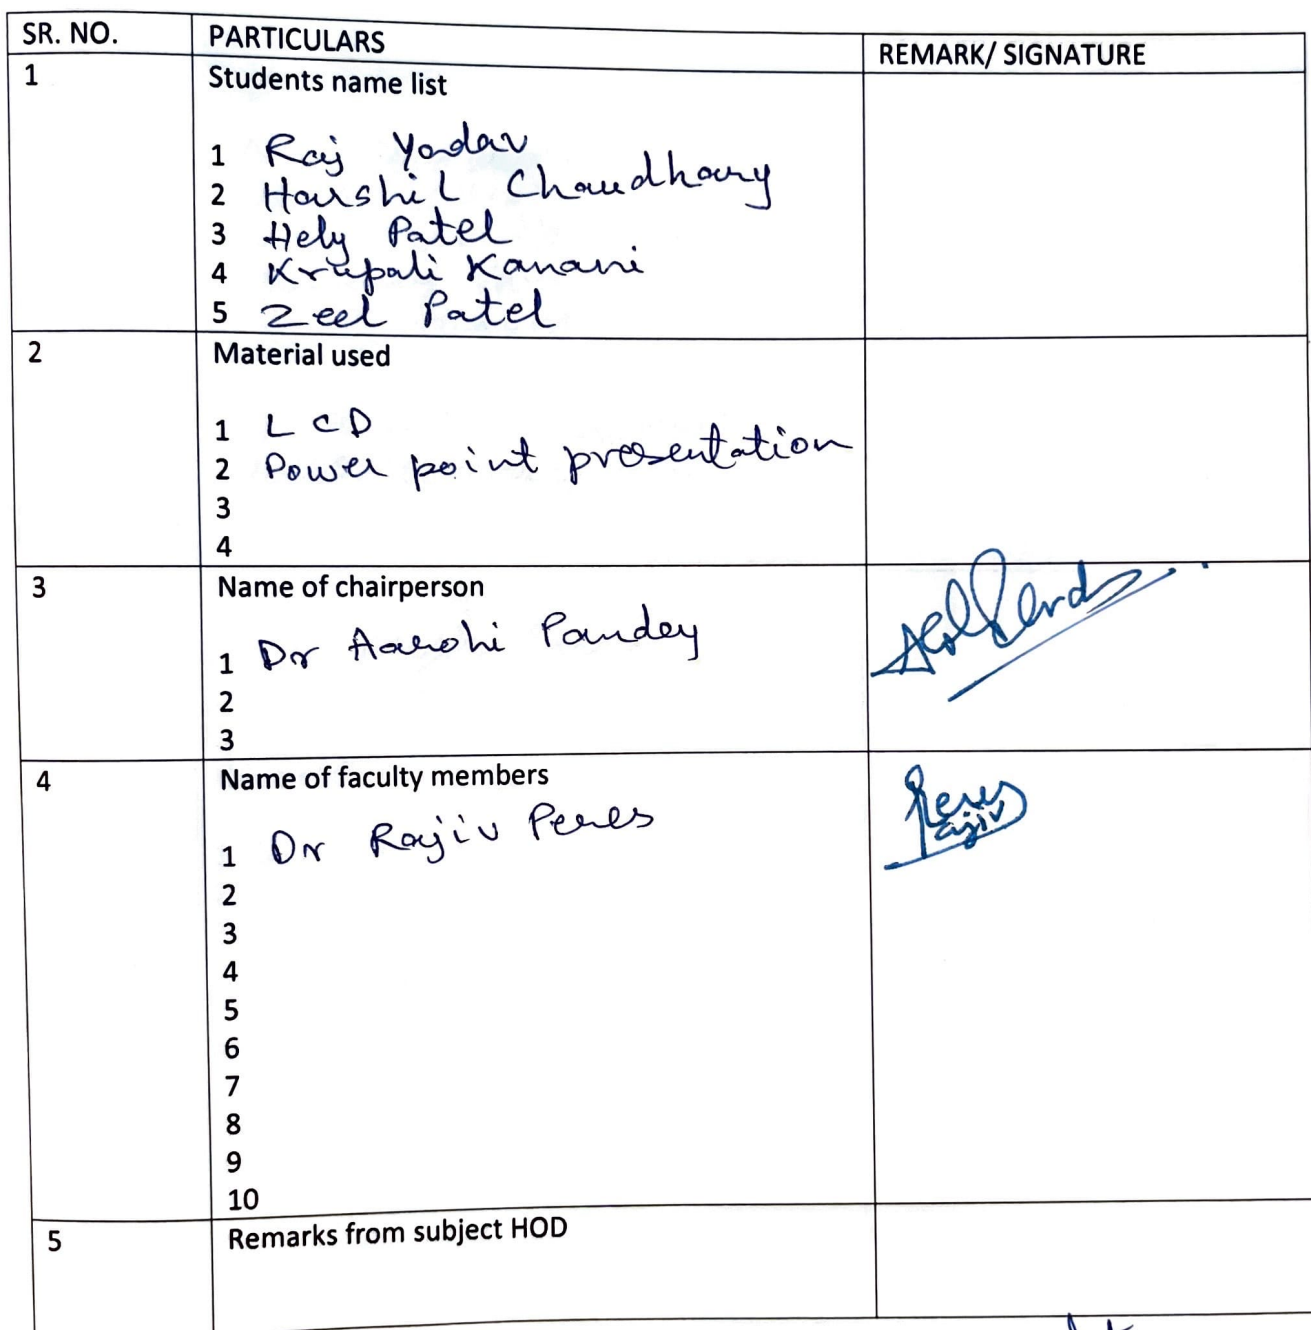 SR. NO. PARTICULARS REMARK/ SIGNATURE
1 Students name list
1 Raj Yadav
2 Harshil Chaudhary
3 Hely Patel
4 Krupali Kanani
5 Zeel Patel
2 Material used
1 LCD
2 Power point presentation
3
4
3 Name of chairperson
1 Dr Aarohi Pandey
2
3
4 Name of faculty members
1 Dr Rajiv Peres
2
3
4
5
6
7
8
9
10
5 Remarks from subject HOD